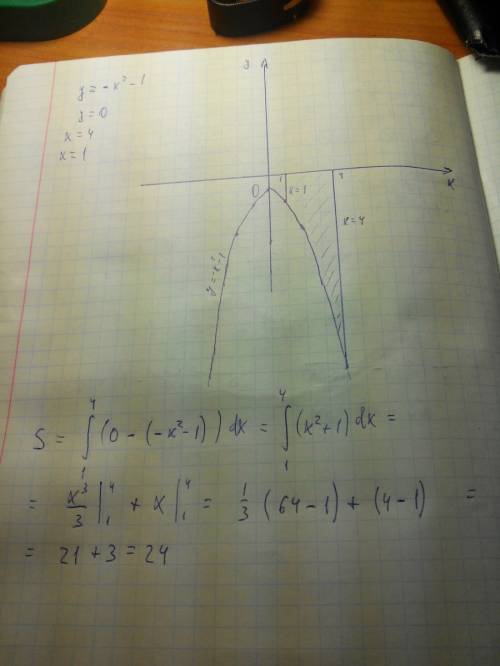 y = -x² - 1
y = 0
x = 4
x = 1
y
1
4
x
0
x=1
x=4
y=-x²-1
S = ∫₁⁴ (0 - (-x²-1)) dx = ∫₁⁴ (x²+1) dx =
= x³/3 |₁⁴ + x |₁⁴ = 1/3 (64-1) + (4-1) =
= 21 + 3 = 24